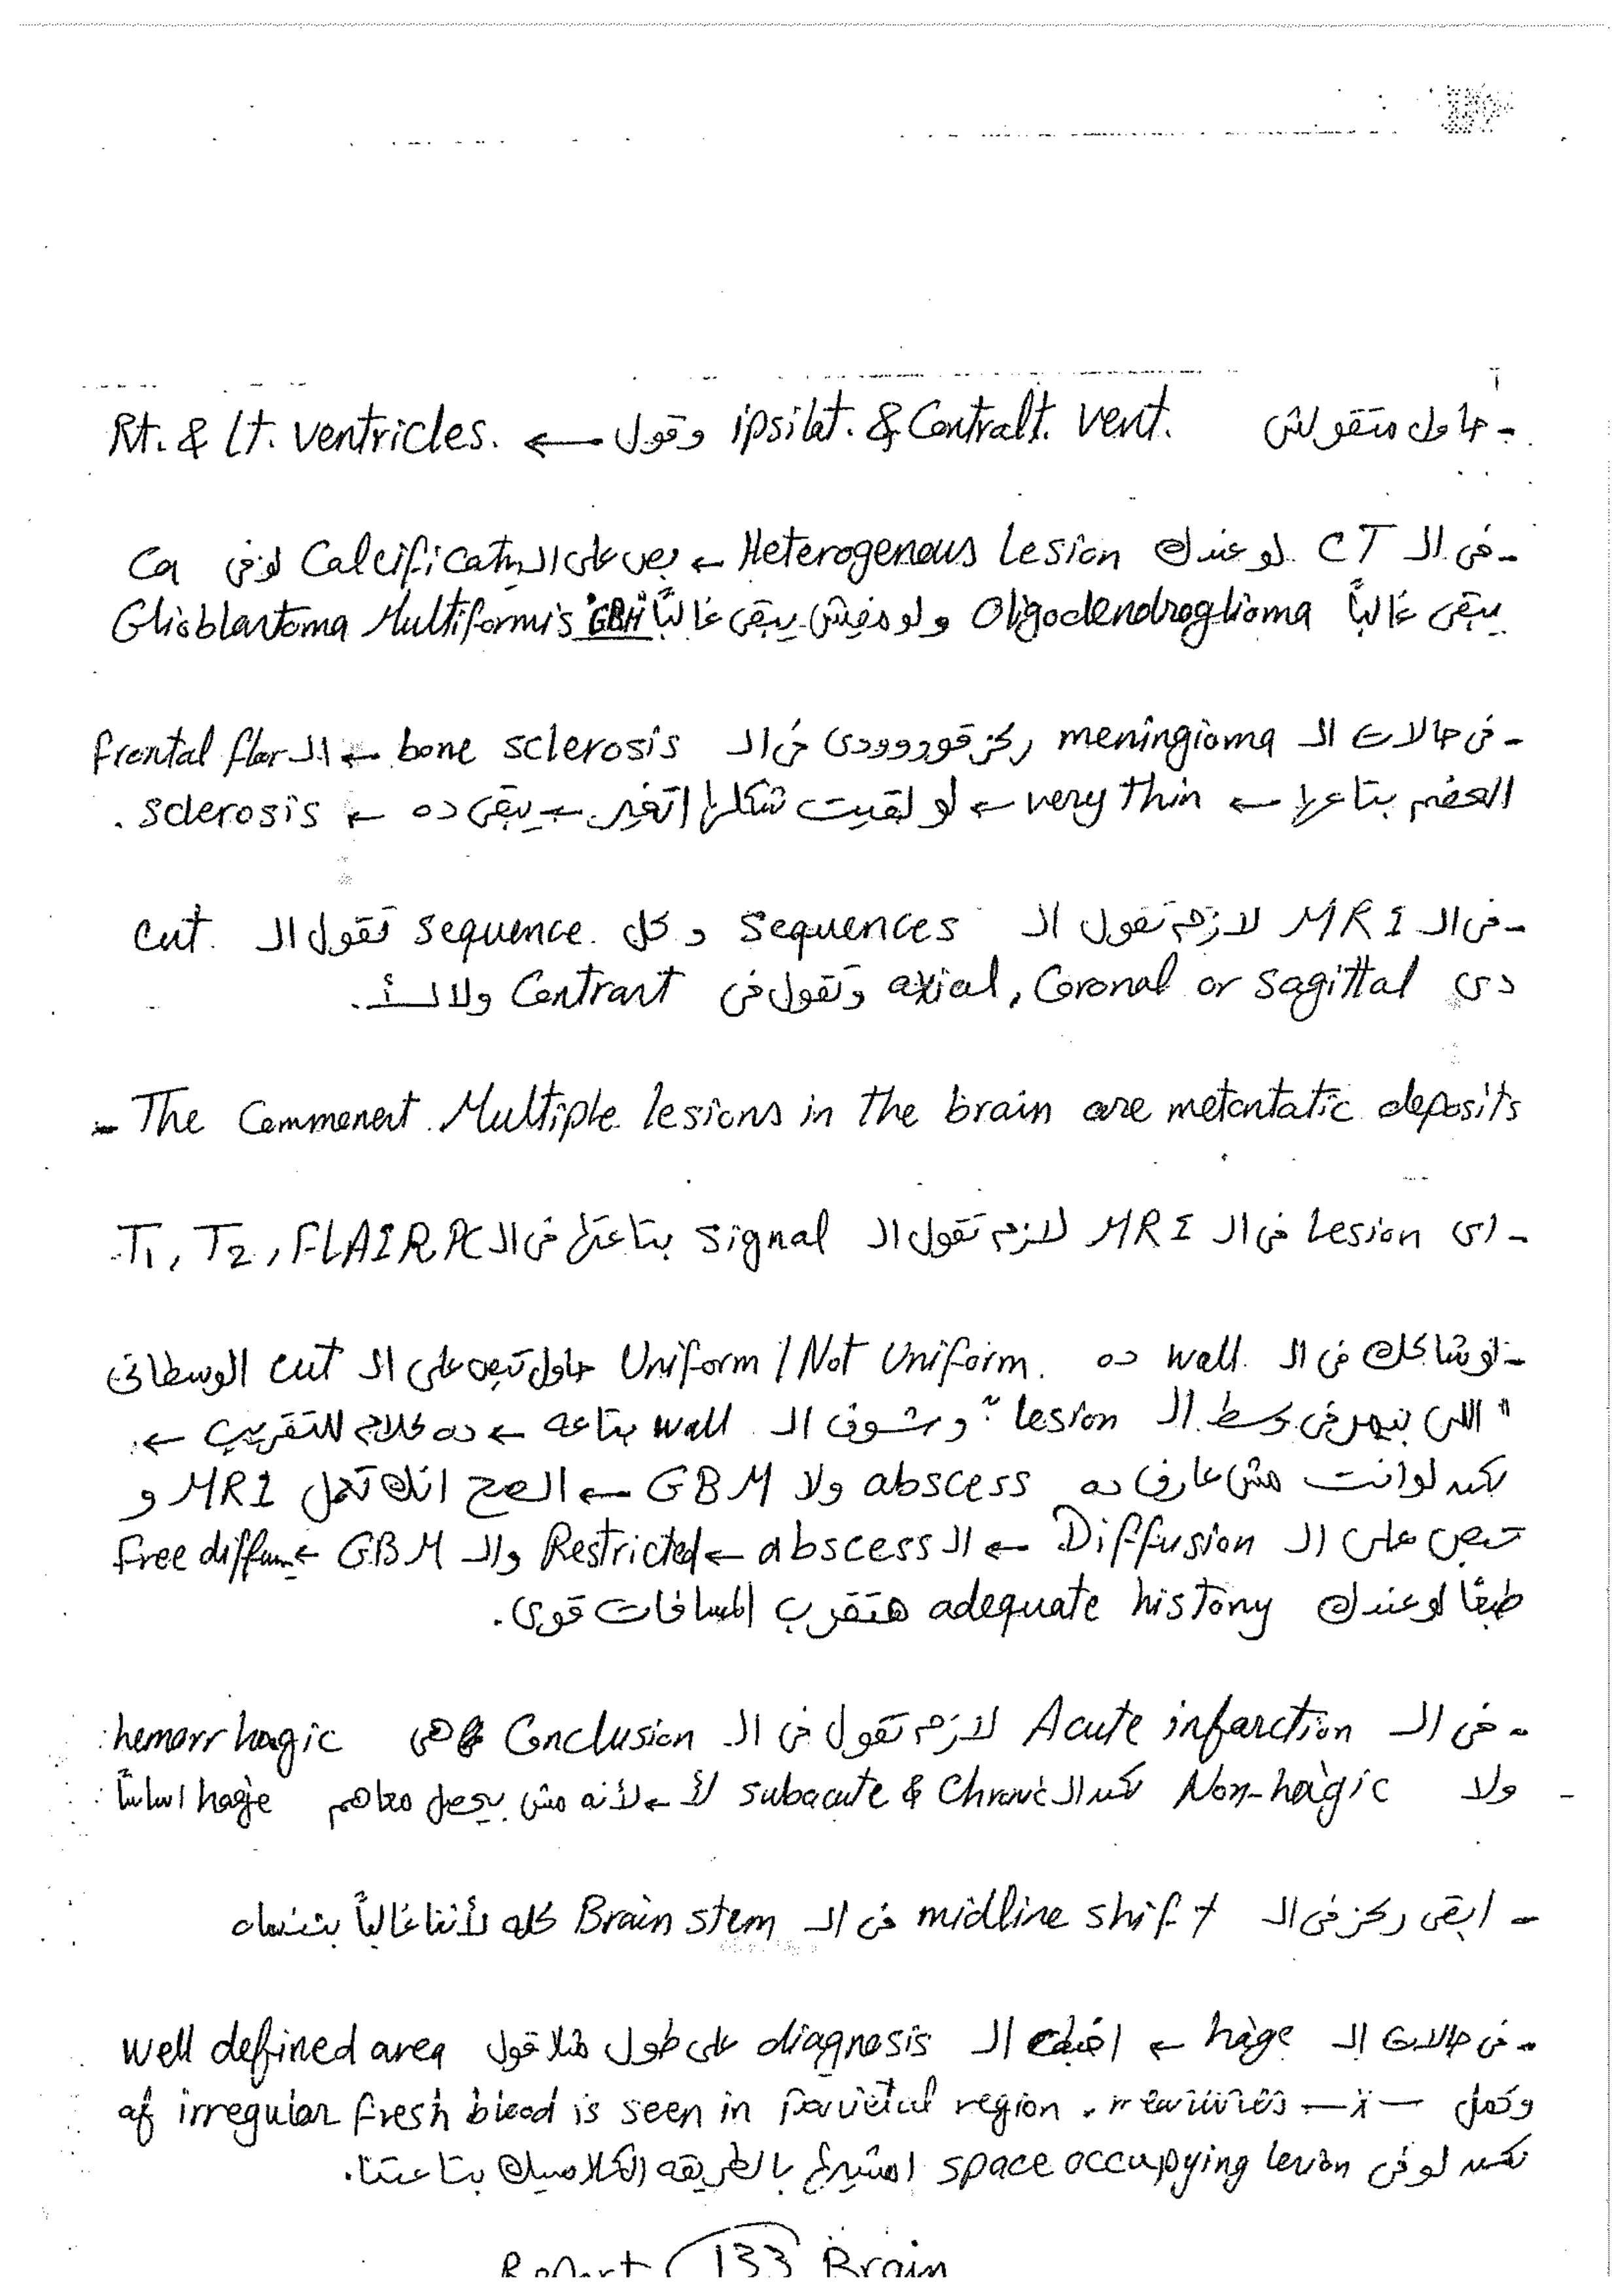 - حاول متقولش ipsilat. & Contralt. vent. وقول ← Rt. & Lt. ventricles.
- فى الـ CT لو عندك Heterogenous Lesion ← بص على الـ Calcification لو فى Ca
يبقى غالباً Oligodendroglioma ولو مفيش يبقى غالباً "GBM" Glioblastoma Multiformis
- فى حالات الـ meningioma ركز قوروووودى فى الـ bone sclerosis ← الـ frontal floor
العضم بتاعها ← very thin ← لو لقيت شكلها اتغير ← يبقى ده ← sclerosis .
- فى الـ MRI لازم تقول الـ Sequences و كل sequence تقول الـ cut
دى axial, Coronal or sagittal وتقول فى Contrast ولا لأ.
- The Commenest Multiple lesions in the brain are metastatic deposits
- اى Lesion فى الـ MRI لازم تقول الـ signal بتاعتها فى الـ T1, T2, FLAIR, PC
- لو شاكك فى الـ wall ده Uniform / Not Uniform. حاول تبص على الـ cut الوسطانى
" اللى بيمر فى وسط الـ lesion " و شوف الـ wall بتاعه ← ده كلام للتقريب ←
بكده لو انت مش عارف ده abscess ولا GBM ← الصح انك تعمل MRI و
تبص على الـ Diffusion ← الـ abscess ← Restricted والـ GBM ← free diffusion
طبعًا لو عندك adequate history هتقرب المسافات قوى.
- فى الـ Acute infarction لازم تقول فى الـ Conclusion هى hemorrhagic
ولا Non-hagic لكن الـ subacute & Chronic لأ ← لأنه مش بيحصل معاهم hage اساساً
- ابقى ركز فى الـ midline shift فى الـ Brain stem كله لأننا غالباً بننساه
- فى حالات الـ hage ← اخبط الـ diagnosis على طول مثلا قول well defined area
of irregular fresh blood is seen in parietal region . وكمل
لكن لو فى space occupying lesion امشيها بالطريقه الكلاسيك بتاعتنا.
Report 133 Brain